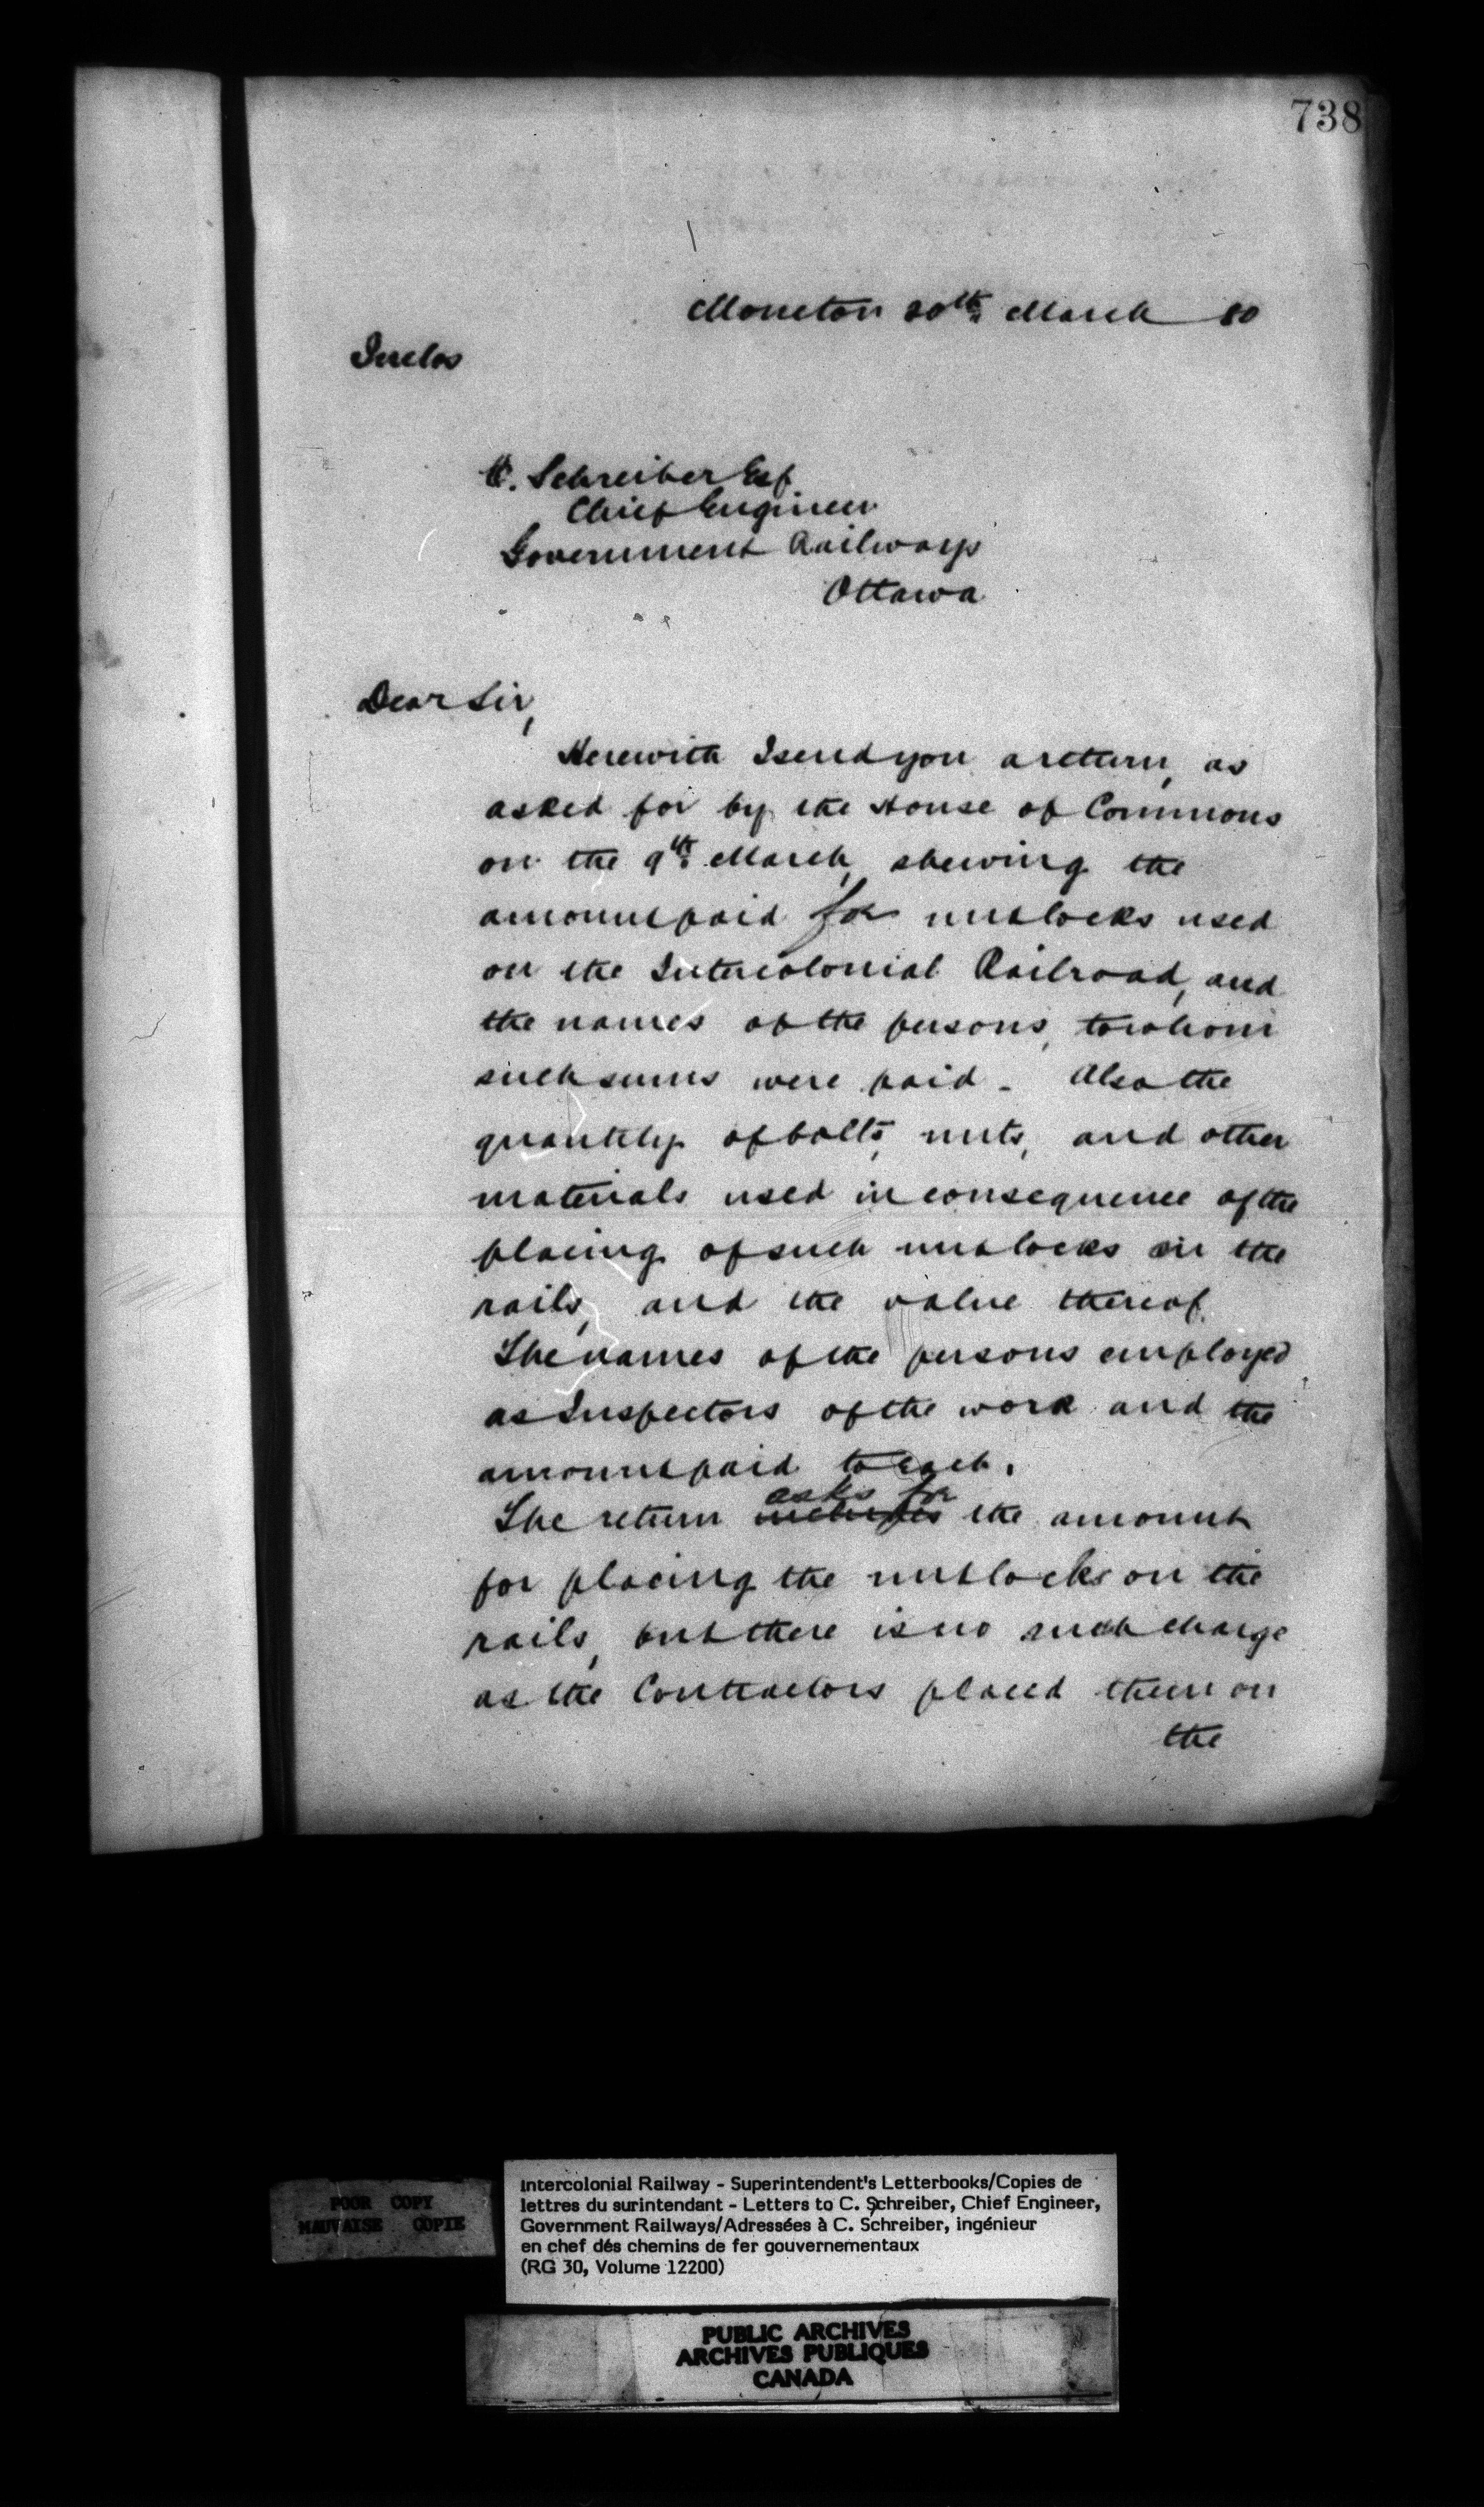 738
Moncton 20th March 80
Inclos
C. Schreiber Esq
Chief Engineer
Government Railways
Ottawa
Dear Sir,
Herewith I send you a return, as
asked for by the House of Commons
on the 9th March, shewing the
amount paid for nutlocks used
on the Intercolonial Railroad, and
the names of the persons, to whom
such sums were paid - Also the
quantity of bolts, nuts, and other
materials used in consequence of the
placing of such nutlocks on the
rails, and the value thereof.
The names of the persons employed
as Inspectors of the work and the
amount paid to each.
asks for
The return includes the amount
for placing the nutlocks on the
rails, but there is no such charge
as the Contractors placed them on
the
POOR COPY
MAUVAISE COPIE
Intercolonial Railway - Superintendent's Letterbooks/Copies de
lettres du surintendant - Letters to C. Schreiber, Chief Engineer,
Government Railways/Adressées à C. Schreiber, ingénieur
en chef dés chemins de fer gouvernementaux
(RG 30, Volume 12200)
PUBLIC ARCHIVES
ARCHIVES PUBLIQUES
CANADA